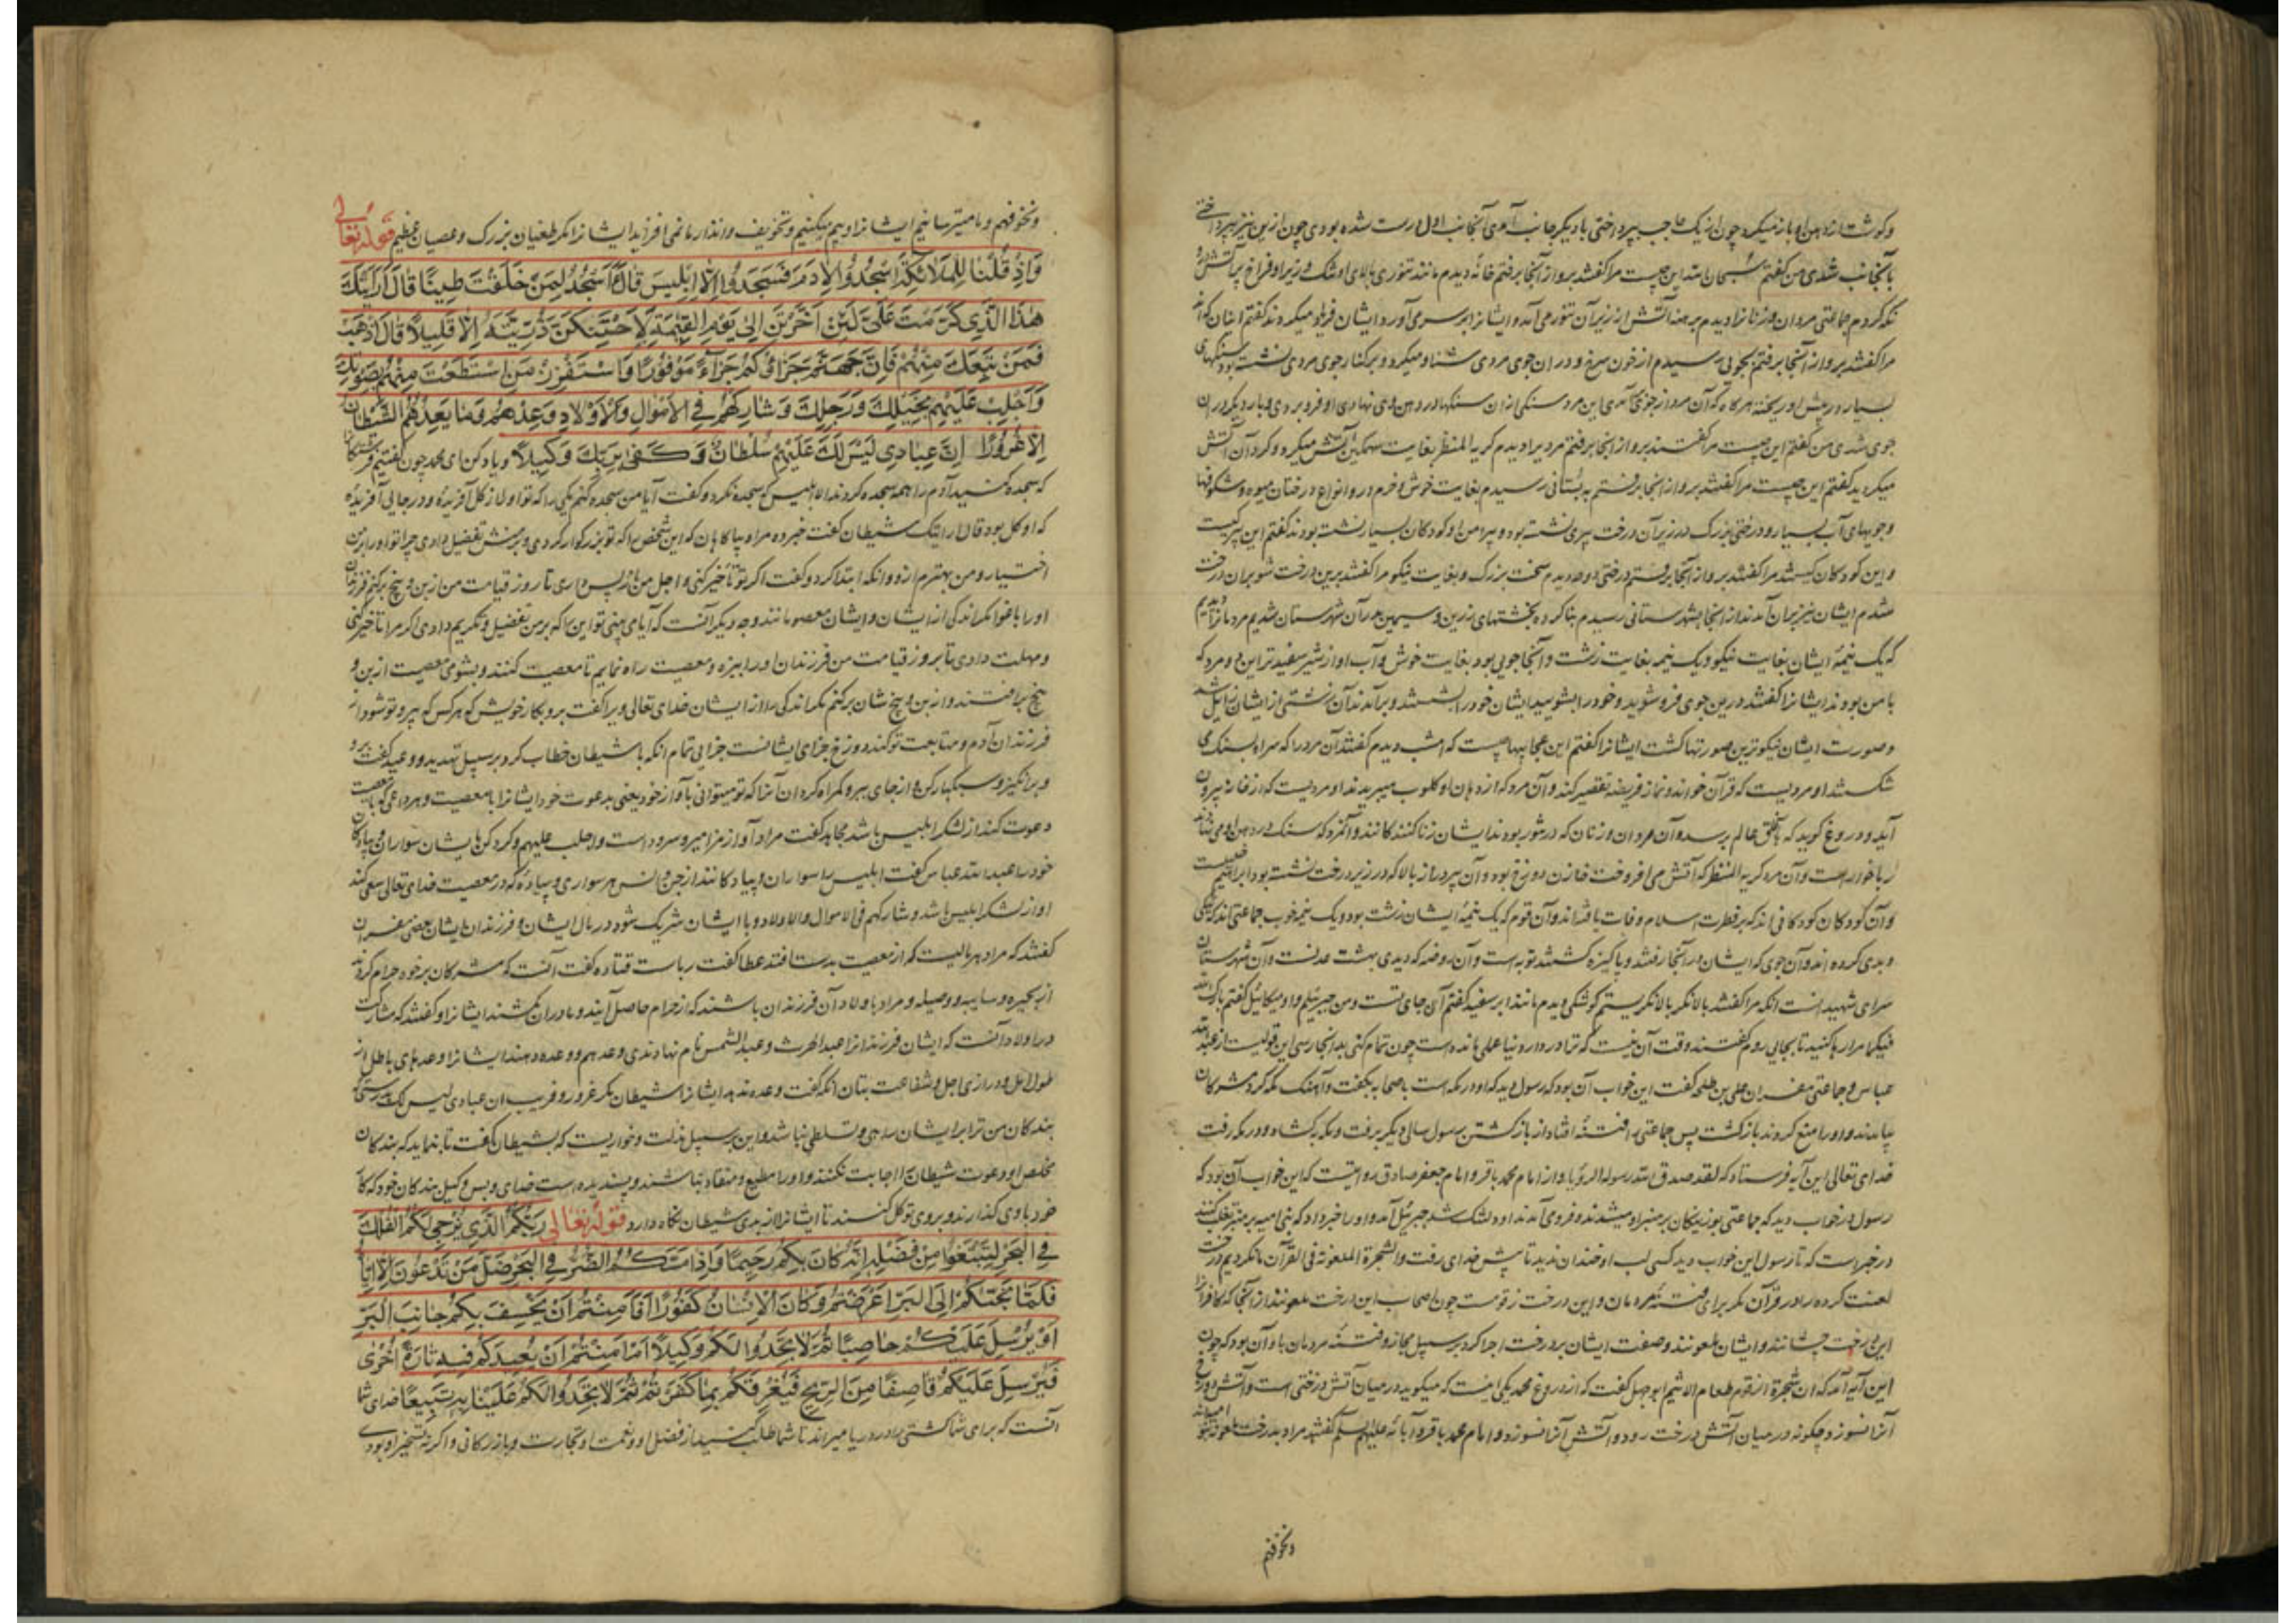 و گوشت از دهن او باز میکرد چون از یک جانب بپرداختی بادیگر جانب آوی آنجانب اول رست شده بودی چون ازین نیز بپرداختی
باآنجانب شدی من گفتم سبحان الله این چیست مرا گفتند برو از آنجا برفتم خانه دیدم مانند تنوری بالای او تنک و زیر او فراخ پر آتش
نکه کردم جماعتی مردان و زنانرا دیدم برهنه آتش از زیر آن تنور می آمد و ایشانرا بر سر می آورد ایشان فریاد میکردند گفتم اینان که اند
مرا گفتند برو از آنجا برفتم بجویی رسیدم از خون سرخ و در ان جوی مردی شنا و میکرد و بر کنار جوی مردی نشسته بود سنکهای
بسیار در پیش او ریخته هر گاه که آن مرد از جوی آمدی این مرد سنکی از ان سنکها در دهن وی نهادی او فرو بردی و بار دیگر در ان
جوی شدی من گفتم این چیست مرا گفتند برو از آنجا برفتم مردیرا دیدم کریه المنظر بغایت سهمگین آتش میکرد و گرد آن آتش
میگردید گفتم این چیست مرا گفتند برو از آنجا برفتم به بستانی رسیدم بغایت خوش و خرم درو انواع درختان میوه و شکوفها
و جویهای آب بسیار و درختی بزرک در زیر آن درخت پیری نشسته بود و پیرامن او کودکان بسیار نشسته بودند گفتم این پیر کیست
و این کودکان کیستند مرا گفتند برو از آنجا برفتم درختی دیدم سخت بزرک و بغایت نیکو مرا گفتند برین درخت شو بران درخت
شدم ایشان نیز بران آمدند از آنجا بشهرستانی رسیدم بنا کرده بخشتهای زرین و سیمین در آن شهرستان شدیم مردمانرا دیدیم
که یک نیمهٔ ایشان بغایت نیکو و یک نیمه بغایت زشت و آنجا جویی بود بغایت خوش و آب او از شیر سفیدتر این دو مرد که
با من بودند ایشانرا گفتند درین جوی فرو شوید و خود را بشویید ایشان خود را بشستند و برآمدند آن زشتی از ایشان زایل شد
و صورت ایشان نیکوترین صورتها گشت ایشانرا گفتم این عجایبها چیست که امشب دیدم گفتند آن مرد را که سر او بسنک می
شکستند او مردیست که قرآن خواند و نماز فریضه تقصیر کند و آن مرد که از دهان او کلوب میبریدند او مردیست که از خانه بیرون
آید و دروغ گوید که بآفاق عالم برسد و آن مردان و زنان که در تنور بودند ایشان زنا کنندگانند و آنمرد که سنک در دهن او می نهادند
ربا خواره است و آن مرد کریه المنظر که آتش می افروخت خازن دوزخ بود و آن پیر دراز بالا که در زیر درخت نشسته بود ابراهیم خلیلست
و آن کودکان کودکانی اند که بر فطرت اسلام وفات یافته اند و آن قوم که یک نیمهٔ ایشان زشت بود و یک نیمه خوب جماعتی اند که نیکی
و بدی کرده اند و آن جوی که ایشان در آنجا رفتند و پاکیزه گشتند توبه است و آن روضه که دیدی بهشت عدنست و آن شهرستان
سرای شهیدانست آنکه مرا گفتند بالا نگر بالا نگریستم کوشکی دیدم مانند ابر سفید گفتم آن جای تست و من جبرئیلم و او میکائیل گفتم بارک الله
فیکما مرا رها کنید تا بجایی روم گفتند وقت آن نیست که ترا در دار دنیا عملی مانده است چون تمام کنی بدانجا رسی این قولیست از عبدالله
عباس و جماعتی مفسران علی بن طلحه گفت این خواب آن بود که رسول دید که او در مکه است باصحابه بگفت و آهنک مکه کرد مشرکان
بیامدند و او را منع کردند بازگشت پس جماعتی را فتنه افتاد از باز گشتن رسول سالی دیگر برفت و مکه بگشاد و در مکه رفت
خدای تعالی این آیه فرستاد که لقد صدق الله رسوله الرؤیا و از امام محمد باقر و امام جعفر صادق روایتست که این خواب آن بود که
رسول در خواب دید که جماعتی بوزینگان بر منبر او میشدند و فرو می آمدند او دلتنگ شد جبرئیل آمد و او را خبر داد که بنی امیه بر منبر تغلب کنند
در خبر است که تا رسول این خواب دید کسی لب او خندان ندید تا پیش خدای رفت والشجرة الملعونة فی القرآن ما نکردیم درخت
لعنت کرده را در قرآن مگر برای فتنهٔ مردمان و این درخت زقومست چون اصحاب این درخت ملعونند از آنجا که کافرانرا
این درخت چشانند و ایشان ملعونند وصفت ایشان بر درخت اجرا کرد بر سبیل مجاز و فتنهٔ مردمان باو آن بود که چون
این آیه آمد که ان شجرة الزقوم طعام الاثیم ابوجهل گفت که از دروغ محمد یکی اینست که میگوید در میان آتش درختی است و آتش درخت
آنرا نسوزد چگونه در میان آتش درخت روید و آتش آنرا نسوزد و امام محمد باقر و آبائه علیهم السلم گفتند مراد بدرخت ملعونه بنو امیه اند
ونخوفهم
ونخوفهم و ما میترسانیم ایشانرا و بیم میکنیم و تخویف و انذار ما نمی افزاید ایشانرا مگر طغیان بزرک و عصیان عظیم قوله تعالی
وَاِذْ قُلْنَا لِلْمَلَائِکَةِ اسْجُدُوا لِاٰدَمَ فَسَجَدُوا اِلَّا اِبْلِیسَ قَالَ ءَاَسْجُدُ لِمَنْ خَلَقْتَ طِینًا قَالَ اَرَاَیْتَكَ
هٰذَا الَّذِی کَرَّمْتَ عَلَیَّ لَئِنْ اَخَّرْتَنِ اِلٰی یَوْمِ الْقِیٰمَةِ لَاَحْتَنِکَنَّ ذُرِّیَّتَهُ اِلَّا قَلِیلًا قَالَ اذْهَبْ
فَمَنْ تَبِعَكَ مِنْهُمْ فَاِنَّ جَهَنَّمَ جَزَاؤُکُمْ جَزَاءً مَوْفُورًا وَاسْتَفْزِزْ مَنِ اسْتَطَعْتَ مِنْهُمْ بِصَوْتِكَ
وَاَجْلِبْ عَلَیْهِمْ بِخَیْلِكَ وَرَجِلِكَ وَشَارِکْهُمْ فِی الْاَمْوَالِ وَالْاَوْلَادِ وَعِدْهُمْ وَمَا یَعِدُهُمُ الشَّیْطَانُ
اِلَّا غُرُورًا اِنَّ عِبَادِی لَیْسَ لَكَ عَلَیْهِمْ سُلْطَانٌ وَکَفٰی بِرَبِّكَ وَکِیلًا و یاد کن ای محمد چون گفتیم فرشتگانرا
که سجده کنید آدم را همه سجده کردند الا ابلیس که سجده نکرد و گفت آیا من سجده کنم یکی را که تو او را از گل آفریدهٔ و در جایی آفریدهٔ
که او گل بود قال ارایتک شیطان گفت خبر ده مرا و بیاگاهان که این شخص را که تو بزرگوار کردی و بر منش تفضیل دادی چرا تو او را بر من
اختیار و من بهترم ازو و آنکه ابتدا کرد و گفت اگر تو تأخیر کنی و اجل من باز پس داری تا روز قیامت من از بن و بیخ برکنم فرزندان
او را باغوا مگر اندکی از ایشان و ایشان معصومانند وجه دیگر آنست که آیا می بینی تو این را که بر من تفضیل و تکریم دادی اگر مرا تأخیر کنی
و مهلت دادی تا بروز قیامت من فرزندان او را بیزه و معصیت راه نمایم تا معصیت کنند و بشومی معصیت از بن و
بیخ برافتند و از بن و بیخ شان برکنم مگر اندکی را از ایشان خدای تعالی ویرا گفت برو بکار خویش که هر کس که پیرو تو شود از
فرزندان آدم و متابعت تو کند دوزخ جزای ایشانست جزایی تمام آنکه با شیطان خطاب کرد بر سبیل تهدید و وعید گفت برو
و برانگیز و سبکبار کن و از جای ببر و گمراه گردان آنرا که تو میتوانی بآواز خود یعنی بدعوت خود ایشانرا با معصیت و هر داعی که با معصیت
دعوت کند از لشکر ابلیس باشد مجاهد گفت مراد آواز مزامیر و سرود است واجلب علیهم و گرد کن با ایشان سواران و پیادگان
خود را عبدالله عباس گفت ابلیس را سواران و پیادگانند از جن و انس هر سواری و پیادهٔ که در معصیت خدای تعالی سعی کند
او از لشکر ابلیس باشد وشارکهم فی الاموال والاولاد و با ایشان شریک شو در مال ایشان و فرزندان ایشان بعضی مفسران
گفتند که مراد هر مالیست که از معصیت بدست افتد عطا گفت رباست قتاده گفت آنست که مشرکان بر خود حرام کردند
از بحیره و سایبه و وصیله و مراد باولاد آن فرزندان باشند که از حرام حاصل آیند و مادران بکشند ایشانرا و گفتند که مشارکت
در اولاد آنست که ایشان فرزندانرا عبدالحرث و عبدالشمس نام نهادندی وعدهم و وعده دهند ایشانرا وعدهای باطل از
طول امل و درازی اجل و شفاعت بتان آنکه گفت وعده ندهد ایشانرا شیطان مگر غرور و فریب ان عبادی لیس لک بدرستی که
بندگان من ترا بر ایشان راهی و تسلطی نباشد و این بر سبیل مذلت و خواریست که بشیطان گفت تا بنماید که بندگان
مخلص او دعوت شیطانرا اجابت نکنند و او را مطیع و منقاد نباشند و پسندیده است خدای و بس وکیل بندگان خود که کار
خود باوی گذارند و بروی توکل کنند تا ایشانرا از بدی شیطان نگاه دارد قوله تعالی رَبُّکُمُ الَّذِی یُزْجِی لَکُمُ الْفُلْكَ
فِی الْبَحْرِ لِتَبْتَغُوا مِنْ فَضْلِهِ اِنَّهُ کَانَ بِکُمْ رَحِیمًا وَاِذَا مَسَّکُمُ الضُّرُّ فِی الْبَحْرِ ضَلَّ مَنْ تَدْعُونَ اِلَّا اِیَّاهُ
فَلَمَّا نَجّٰیکُمْ اِلَی الْبَرِّ اَعْرَضْتُمْ وَکَانَ الْاِنْسَانُ کَفُورًا اَفَاَمِنْتُمْ اَنْ یَخْسِفَ بِکُمْ جَانِبَ الْبَرِّ
اَوْ یُرْسِلَ عَلَیْکُمْ حَاصِبًا ثُمَّ لَا تَجِدُوا لَکُمْ وَکِیلًا اَمْ اَمِنْتُمْ اَنْ یُعِیدَکُمْ فِیهِ تَارَةً اُخْرٰی
فَیُرْسِلَ عَلَیْکُمْ قَاصِفًا مِنَ الرِّیحِ فَیُغْرِقَکُمْ بِمَا کَفَرْتُمْ ثُمَّ لَا تَجِدُوا لَکُمْ عَلَیْنَا بِهِ تَبِیعًا خدای شما
آنست که برای شما کشتی را در دریا میراند تا شما طلب کنید از فضل او و نعمت او تجارت و بازرگانی و اگر نه تسخیر او بودی